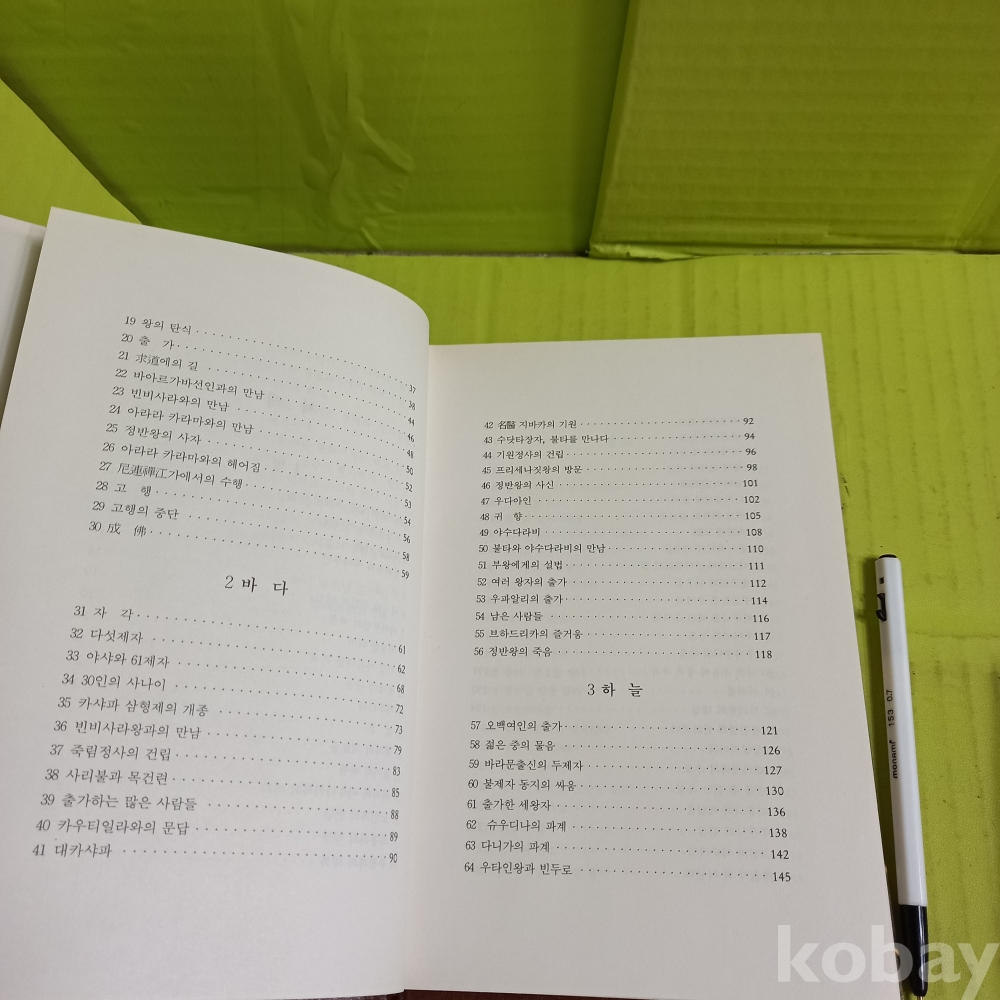 19 왕의 탄식 37
20 출 가 38
21 求道에의 길 44
22 바아르가바선인과의 만남 46
23 빈비사라와의 만남 48
24 아라라 카라마와의 만남 50
25 정반왕의 사자 52
26 아라라 카라마와의 헤어짐 53
27 尼連禪江가에서의 수행 54
28 고 행 56
29 고행의 중단 58
30 成 佛 59
2 바 다
31 자 각 61
32 다섯제자 62
33 야샤와 61제자 68
34 30인의 사나이 72
35 카샤파 삼형제의 개종 73
36 빈비사라왕과의 만남 79
37 죽림정사의 건립 83
38 사리불과 목건련 85
39 출가하는 많은 사람들 88
40 카우티일라와의 문답 89
41 대카샤파 90
42 名醫 지바카의 기원 92
43 수닷타장자, 불타를 만나다 94
44 기원정사의 건립 96
45 프리세나짓왕의 방문 98
46 정반왕의 사신 101
47 우다아인 102
48 귀 향 105
49 야수다라비 108
50 불타와 야수다라비의 만남 110
51 부왕에게의 설법 111
52 여러 왕자의 출가 112
53 우파알리의 출가 114
54 남은 사람들 116
55 브하드리카의 즐거움 117
56 정반왕의 죽음 118
3 하 늘
57 오백여인의 출가 121
58 젊은 중의 물음 126
59 바라문출신의 두제자 127
60 불제자 동지의 싸움 130
61 출가한 세왕자 136
62 슈우디나의 파계 138
63 다니가의 파계 142
64 우타인왕과 빈두로 145
monami 153 0.7
kobay